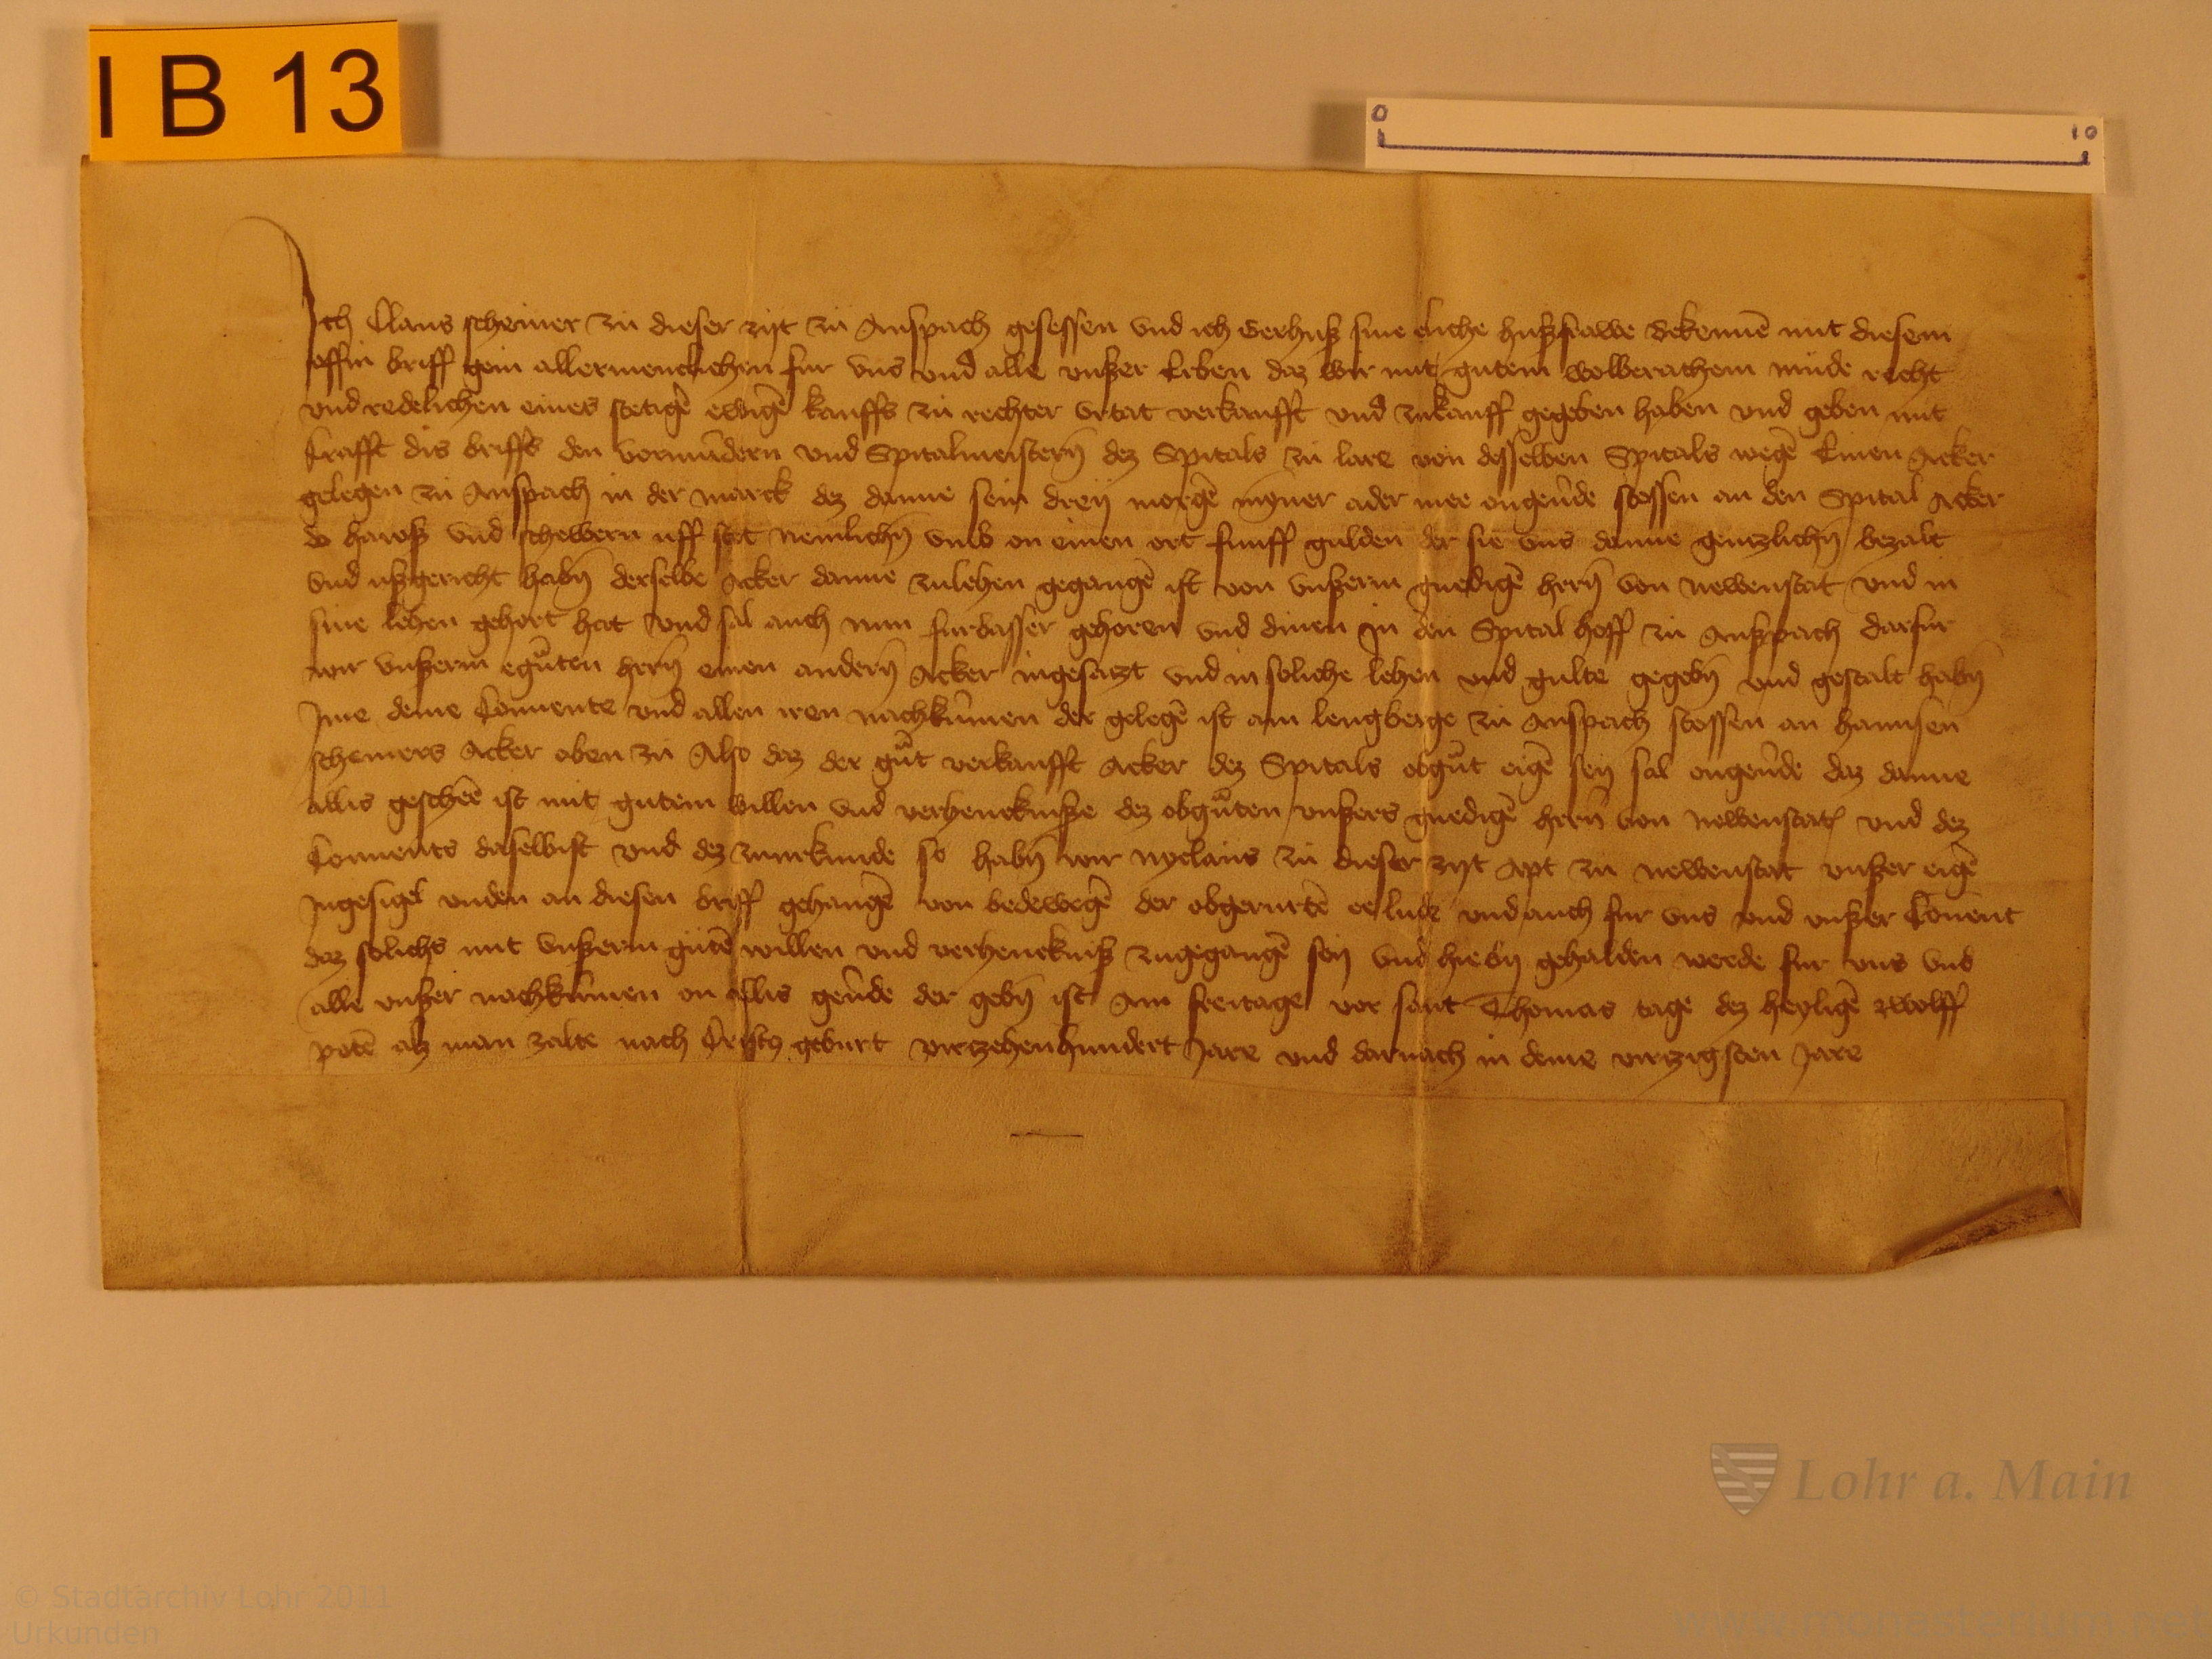 I B 13
0 10
Ich Claus scheiner zu dieser zijt zu Anspach gesessen vnd ich Gerhuß sine eliche hußfrawe bekennē mit diesem
offin briff gein allermenclichen fur vns vnd alle vnßer Erben daz wir mit gutem wolberathem mude recht
vnd redelichen eines stetigē ewigē kauffs zu rechter vrtat verkaufft vnd zukauff gegeben haben vnd geben mit
krafft dis briffs den vormūdern vnd Spitalmeistern̄ dez Spitals zu lare von desselben Spitals wegē Einen Acker
gelegen zu Anspach in der marck dez danne sein dreij morgē mȳner ader mee ongeūde stossen an den Spital Acker
vnd schewern uff stet nemlichn̄ vmb on einen ort funff gulden der sie vns danne gentzlichn̄ bezalt
vnd ußgericht habn̄ derselbe Acker danne zulehen gegangē ist von vnßerm gnedigē hern̄ von Newenstat vnd in
sine lehen gehort hat vnd sal auch nun furbasser gehoren vnd dinen In den Spital hoff zu Anspach darfur
wir vnßerm egūten hern̄ einen andern̄ Acker ingesatzt vnd in soliche lehen vnd gulte gegebn̄ vnd gestalt habn̄
Ime deme Conuente vnd allen iren nachkūmen der gelegē ist am lengberge zu Anspach stossen an hannsen
scheiners Acker oben zu Also daz der gūt verkaufft Acker dez Spitals obgūt eigē sey sal ongeūde daz danne
allis gescheē ist mit gutem willen vnd verhencknisse dez obgūten vnßers gnedigē hern̄ von Newenstat vnd dez
Conuents daselbist vnd dez zuurkunde so habn̄ wir Nyclaus zu dieser zijt Apt zu Newenstat vnßer eigē
Ingesigel vnden an diesen briff gehangē von bedewegē der obgerurtē eelude vnd auch fur vns vnd vnßer Couent
daz solichs mit vnßerm gutē willen vnd verhenckniß zugegangē sey vnd hiebij gehalden werde fur vns vnd
alle vnßer nachkūmen on allis geūde der gebn̄ ist Am freitage vor sant Thomas tage dez heyligē zwolff
potē alz man zalte nach Cristi geburt virtzehenhundert Jare vnd darnach in deme virtzigsten Jare
Lohr a. Main
© Stadtarchiv Lohr 2011
Urkunden
www.monasterium.net